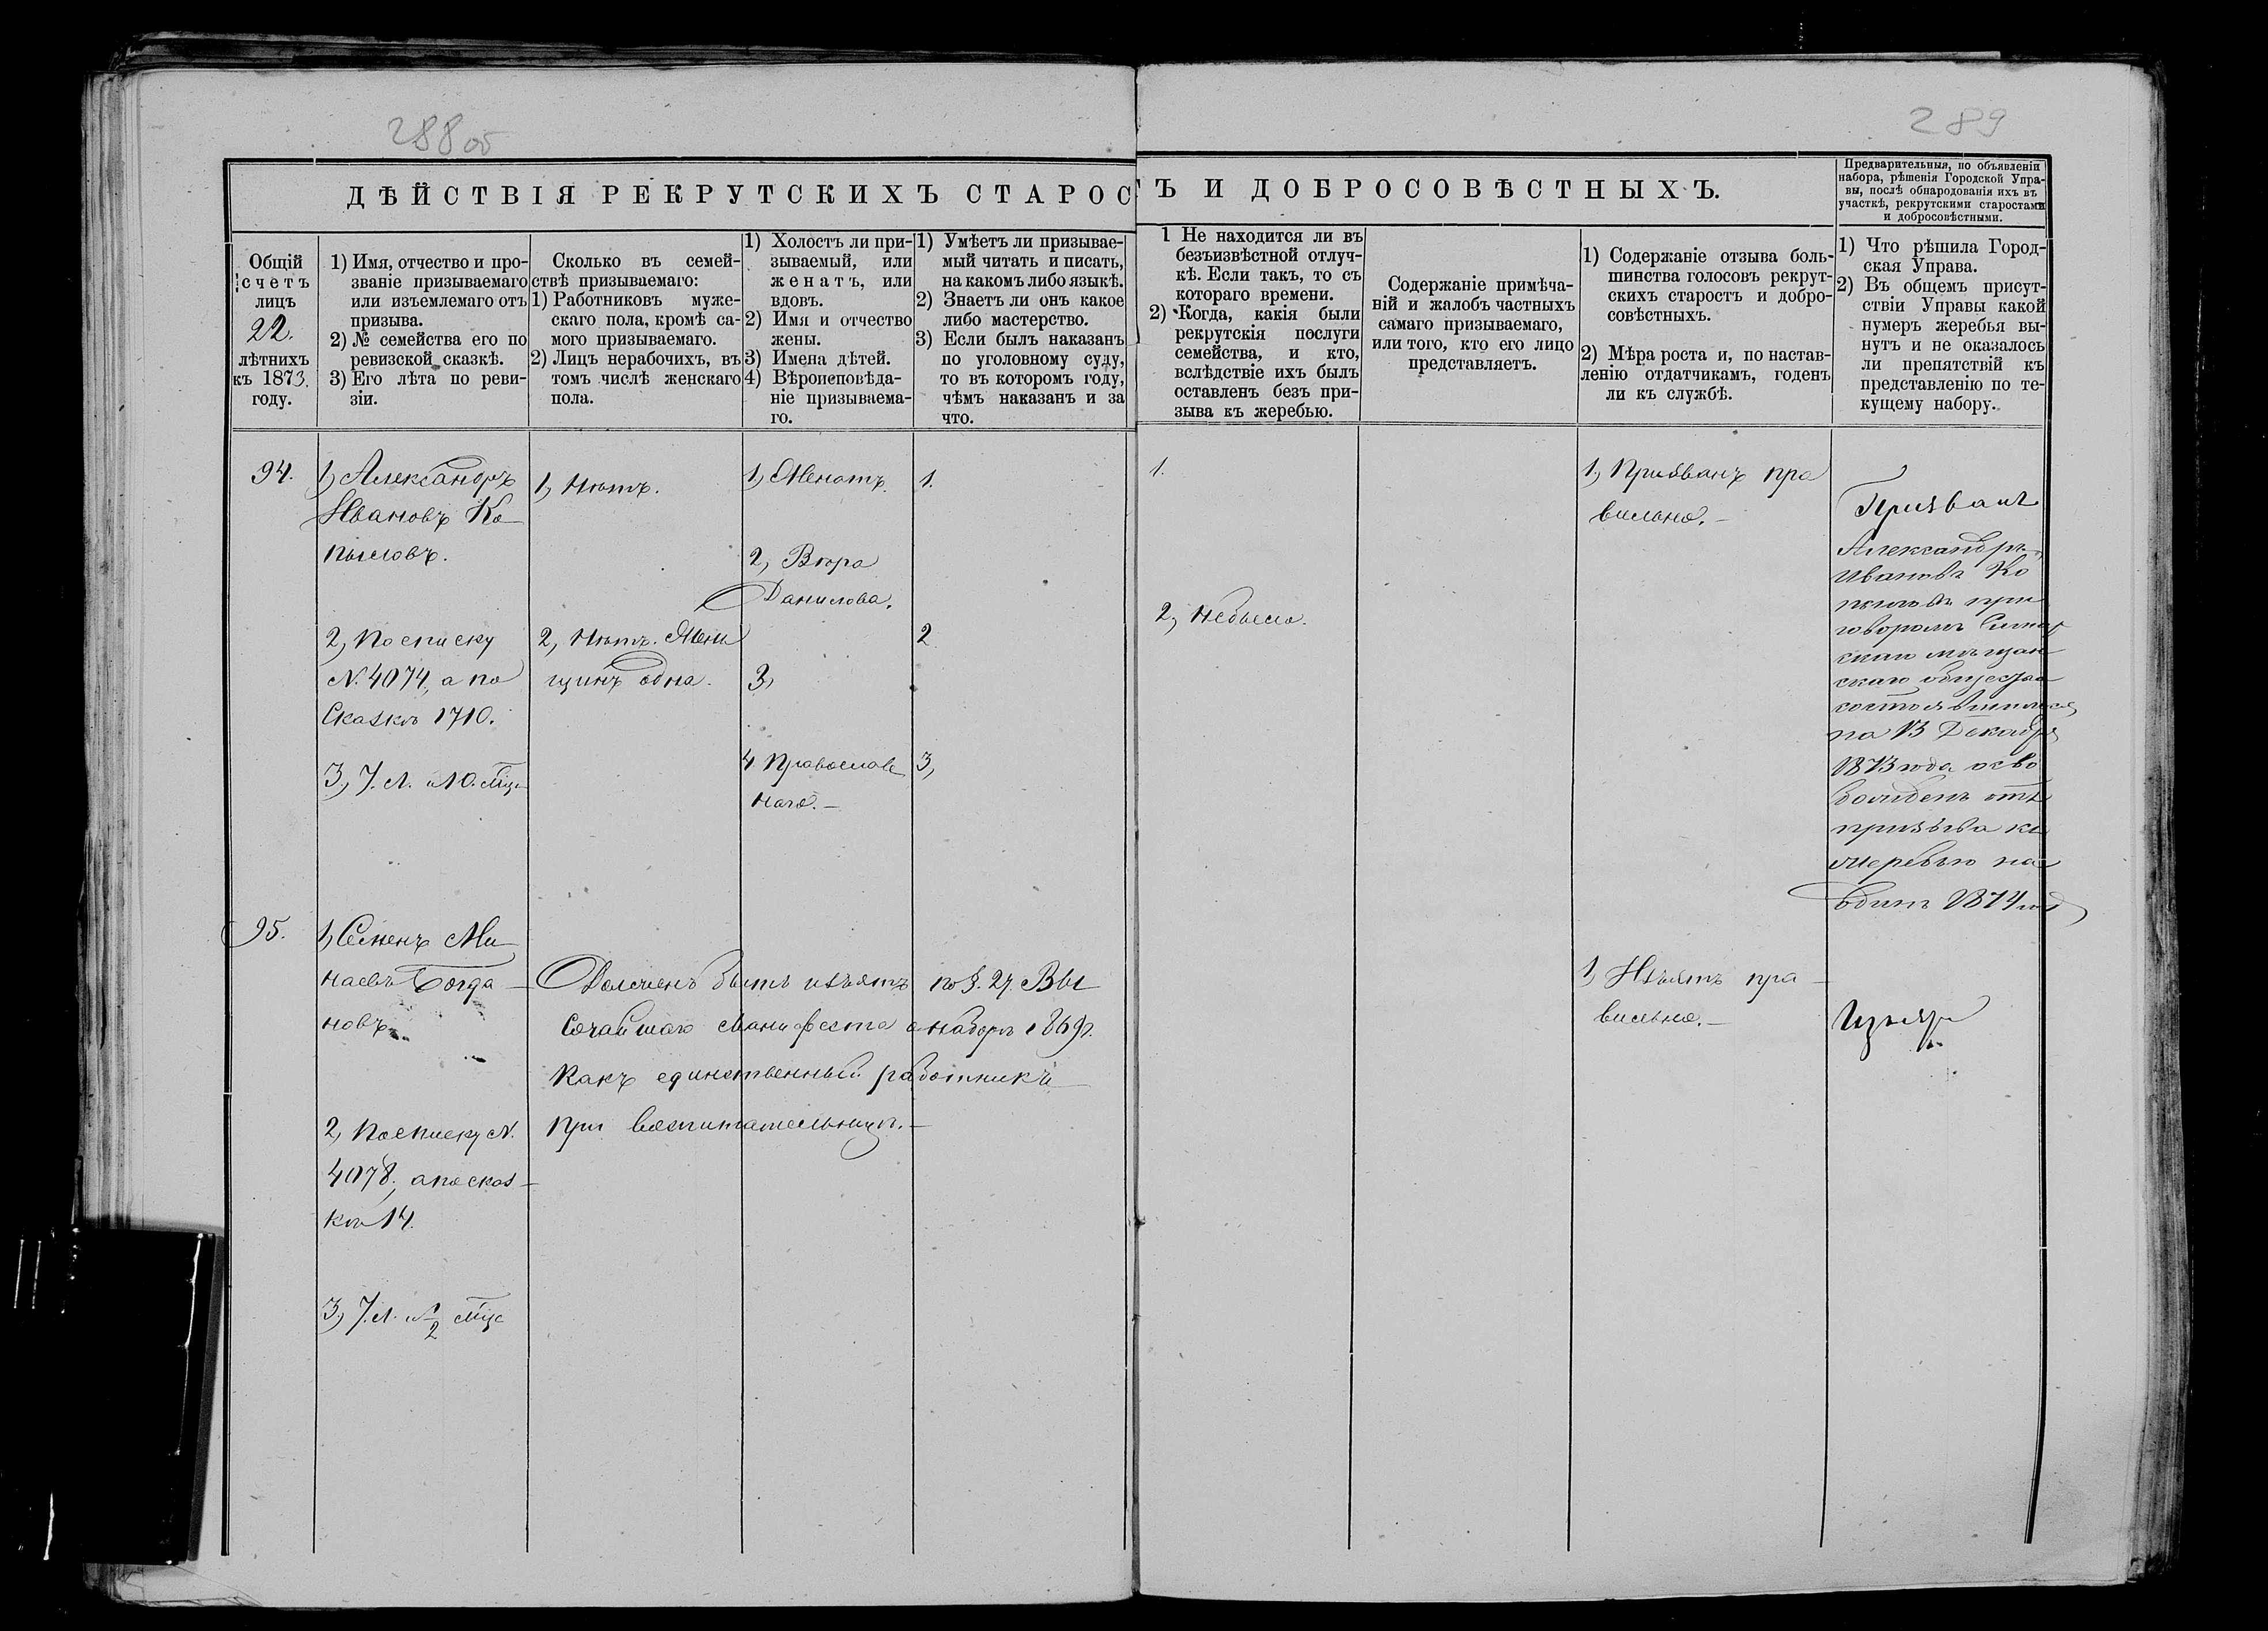 288 об
289
ДѢЙСТВІЯ РЕКРУТСКИХЪ СТАРОСТЪ И ДОБРОСОВѢСТНЫХЪ.
Предварительныя, по объявленіи
набора, рѣшенія Городской Упра-
вы, послѣ обнародованія ихъ въ
участкѣ, рекрутскими старостами
и добросовѣстными.
Общій
счетъ
лицъ
22.
лѣтнихъ
къ 1873.
году.
1) Имя, отчество и про-
званіе призываемаго
или изъемлемаго отъ
призыва.
2) № семейства его по
ревизской сказкѣ.
3) Его лѣта по реви-
зіи.
Сколько въ семей-
ствѣ призываемаго:
1) Работниковъ муже-
скаго пола, кромѣ са-
мого призываемаго.
2) Лицъ нерабочихъ, въ
томъ числѣ женскаго
пола.
1) Холостъ ли при-
зываемый, или
женатъ, или
вдовъ.
2) Имя и отчество
жены.
3) Имена дѣтей.
4) Вѣроисповѣда-
ніе призываема-
го.
1) Умѣетъ ли призывае-
мый читать и писать,
на какомъ либо языкѣ.
2) Знаетъ ли онъ какое
либо мастерство.
3) Если былъ наказанъ
по уголовному суду,
то въ которомъ году,
чѣмъ наказанъ и за
что.
1 Не находится ли въ
безъизвѣстной отлуч-
кѣ. Если такъ, то съ
котораго времени.
2) Когда, какія были
рекрутскія послуги
семейства, и кто,
вслѣдствіе ихъ былъ
оставленъ безъ при-
зыва къ жеребью.
Содержаніе примѣча-
ній и жалобъ частныхъ
самаго призываемаго,
или того, кто его лицо
представляетъ.
1) Содержаніе отзыва боль-
шинства голосовъ рекрут-
скихъ старостъ и добро-
совѣстныхъ.
2) Мѣра роста и, по настав-
ленію отдатчикамъ, годенъ
ли къ службѣ.
1) Что рѣшила Город-
ская Управа.
2) Въ общемъ присут-
ствіи Управы какой
нумеръ жеребья вы-
нутъ и не оказалось
ли препятствій къ
представленію по те-
кущему набору.
94.
1, Александръ
Ивановъ Ко-
пыловъ.
2, По списку
N. 4074, а по
Сказкѣ 1710.
3, 7. л. 10. мѣс
1, Нѣтъ.
2, Нѣтъ. Жен
щинъ одна.
1, Женатъ.
2, Вѣра
Данилова.
3,
4 Православ
наго. —
1.
2
3,
1.
2, Небыло.
1, Призванъ пра
вильно. —
Призванъ
Александръ
Ивановъ Ко
пыловъ при
говоромъ
скаго мѣщан
скаго общества
состоявшимся
на 13 Декабря
1873 года осво
божденъ отъ
призыва къ
жеребью на
одинъ 1874 годъ
95.
1, Семенъ Ми
наевъ Богда
новъ.
2, По списку N.
4078, а по сказ-
кѣ 14.
3, 7. л. 1/2 мѣс
Долженъ быть изъятъ по §. 27. Вы
сочайшаго Манифеста о наборѣ 1869 г.
какъ единственный работникъ
при воспитательницѣ. —
1, Изъятъ пра —
вильно. —
Изъятъ